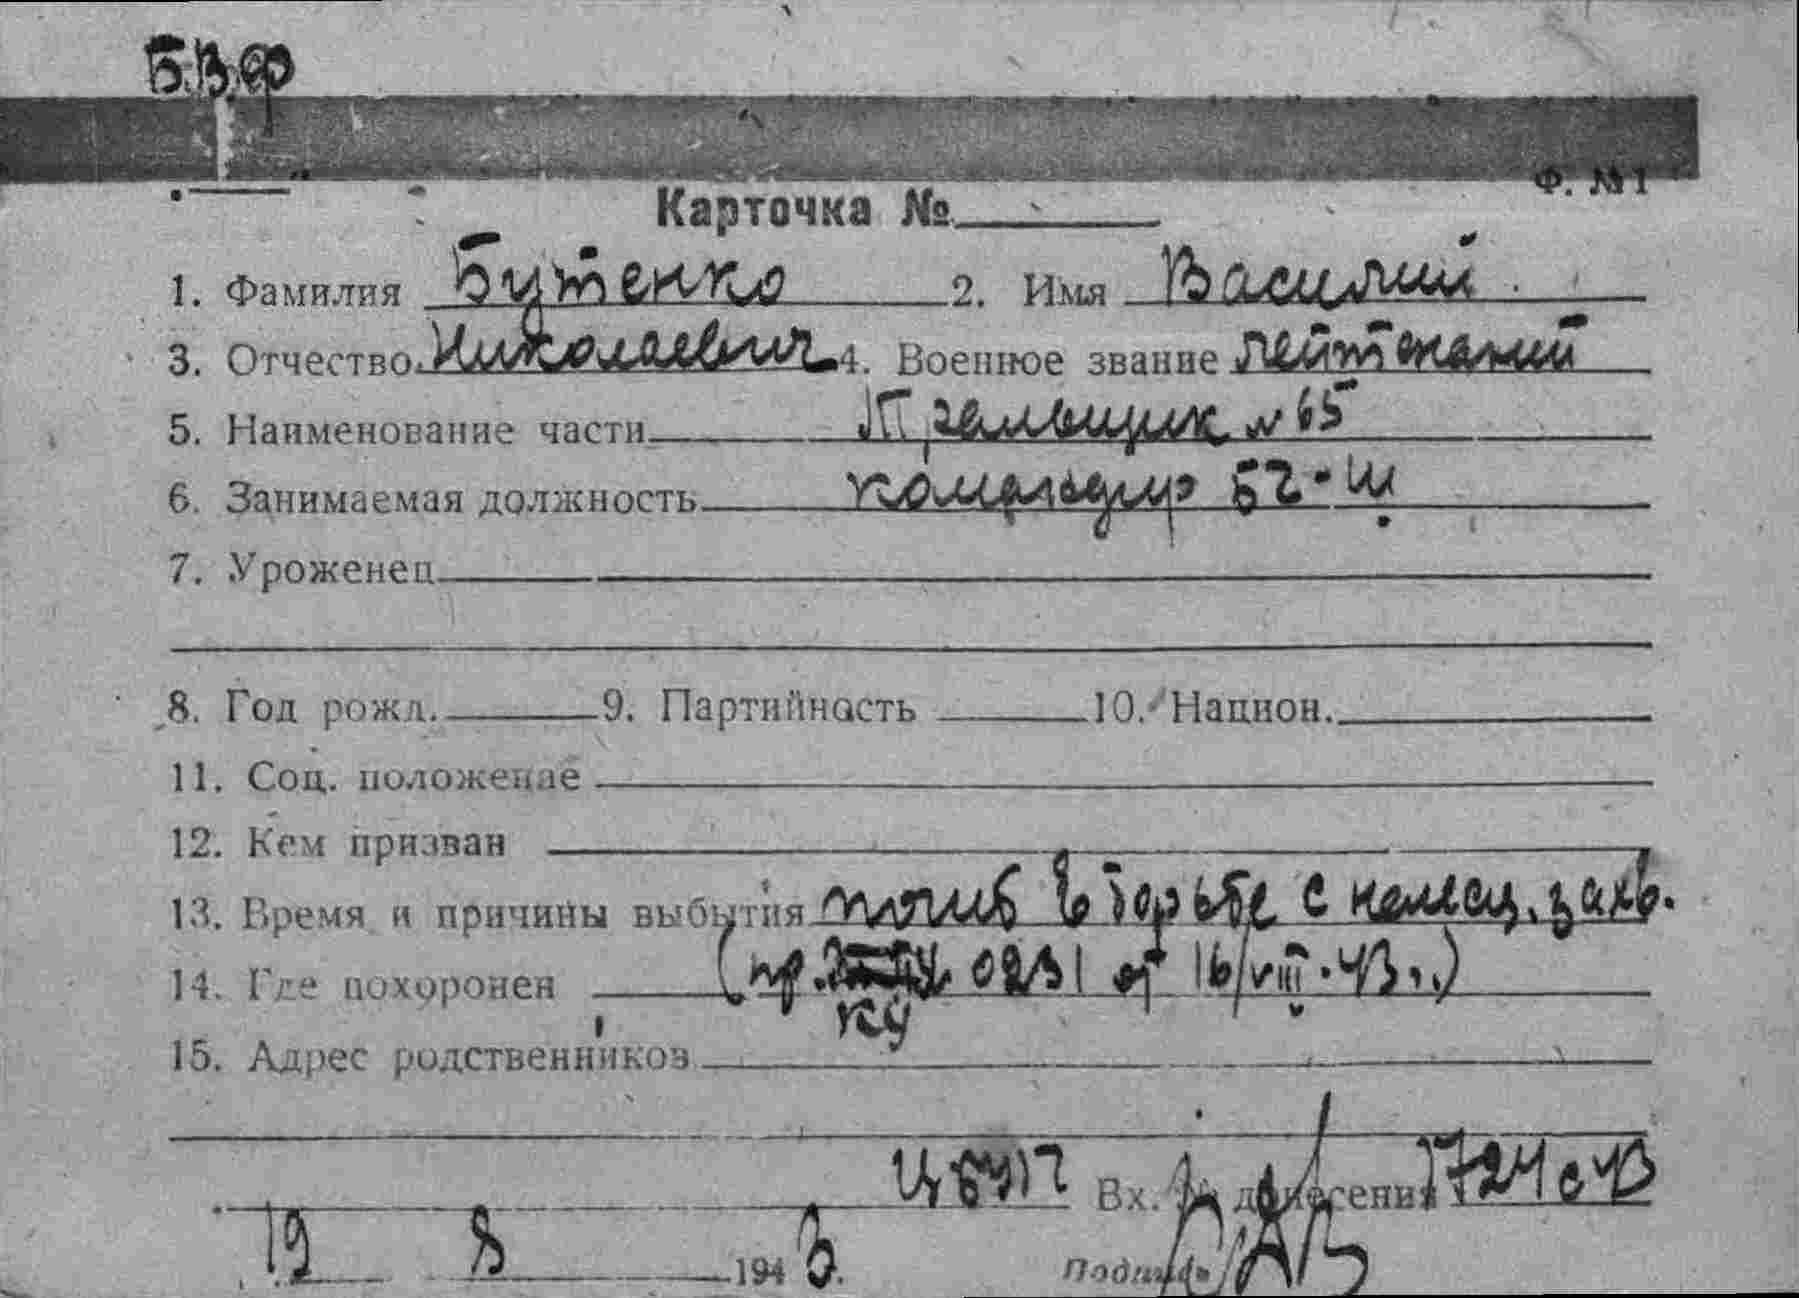 Б.В.Ф
Ф. №1
Карточка №
1. Фамилия Бутенко 2. Имя Василий
3. Отчество Николаевич 4. Военное звание лейтенант
5. Наименование части Тральщик № 65
6. Занимаемая должность командир БЧ-III
7. Уроженец
8. Год рожд. 9. Партийность 10. Национ.
11. Соц. положение
12. Кем призван
13. Время и причины выбытия погиб в борьбе с немец. захв.
14. Где похоронен (пр. 0231 от 16/VIII-43 г.)
КУ
15. Адрес родственников
Вх. № донесения 1724с 43
19 8 1943. Подпись